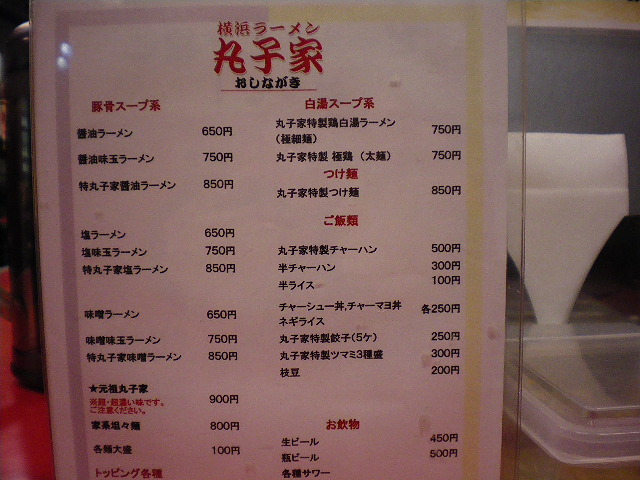 横浜ラーメン
丸子家
おしながき
豚骨スープ系
醤油ラーメン 650円
醤油味玉ラーメン 750円
特丸子家醤油ラーメン 850円
塩ラーメン 650円
塩味玉ラーメン 750円
特丸子家塩ラーメン 850円
味噌ラーメン 650円
味噌味玉ラーメン 750円
特丸子家味噌ラーメン 850円
★元祖丸子家 900円
※超・超濃い味です。
ご注意ください。
家系坦々麺 800円
各麺大盛 100円
トッピング各種
白湯スープ系
丸子家特製鶏白湯ラーメン 750円
(極細麺)
丸子家特製 極鶏 (太麺) 750円
つけ麺
丸子家特製つけ麺 850円
ご飯類
丸子家特製チャーハン 500円
半チャーハン 300円
半ライス 100円
チャーシュー丼,チャーマヨ丼 各250円
ネギライス
丸子家特製餃子(5ケ) 250円
丸子家特製ツマミ3種盛 300円
枝豆 200円
お飲物
生ビール 450円
瓶ビール 500円
各種サワー